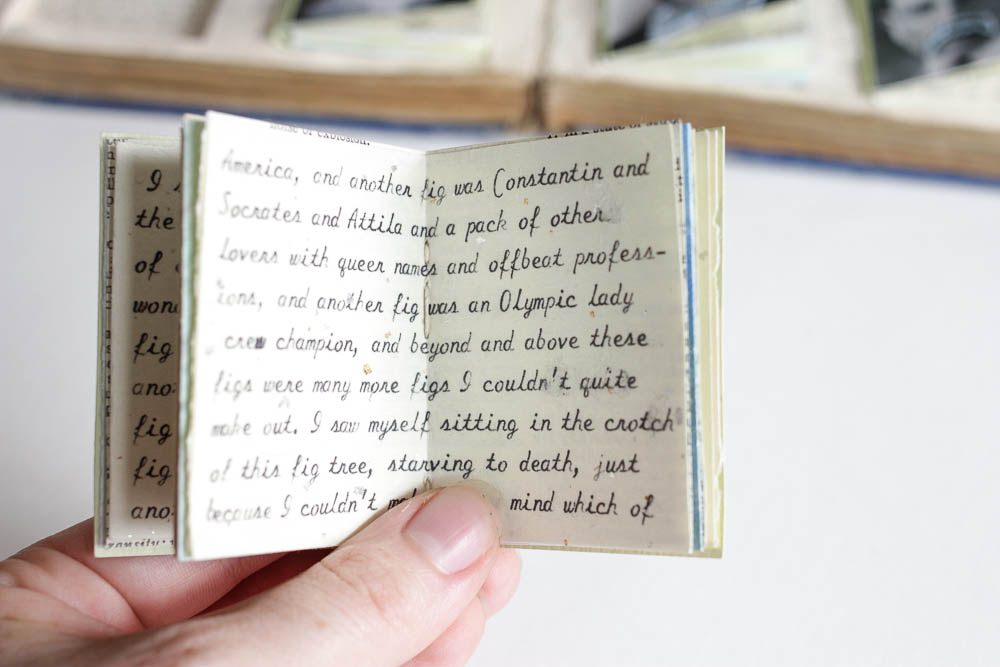 noise or explosion.
America, and another fig was Constantin and
Socrates and Attila and a pack of other
lovers with queer names and offbeat profess-
ions, and another fig was an Olympic lady
crew champion, and beyond and above these
figs were many more figs I couldn't quite
make out. I saw myself sitting in the crotch
of this fig tree, starving to death, just
because I couldn't mind which of
I
the
of
fig
fig
fig